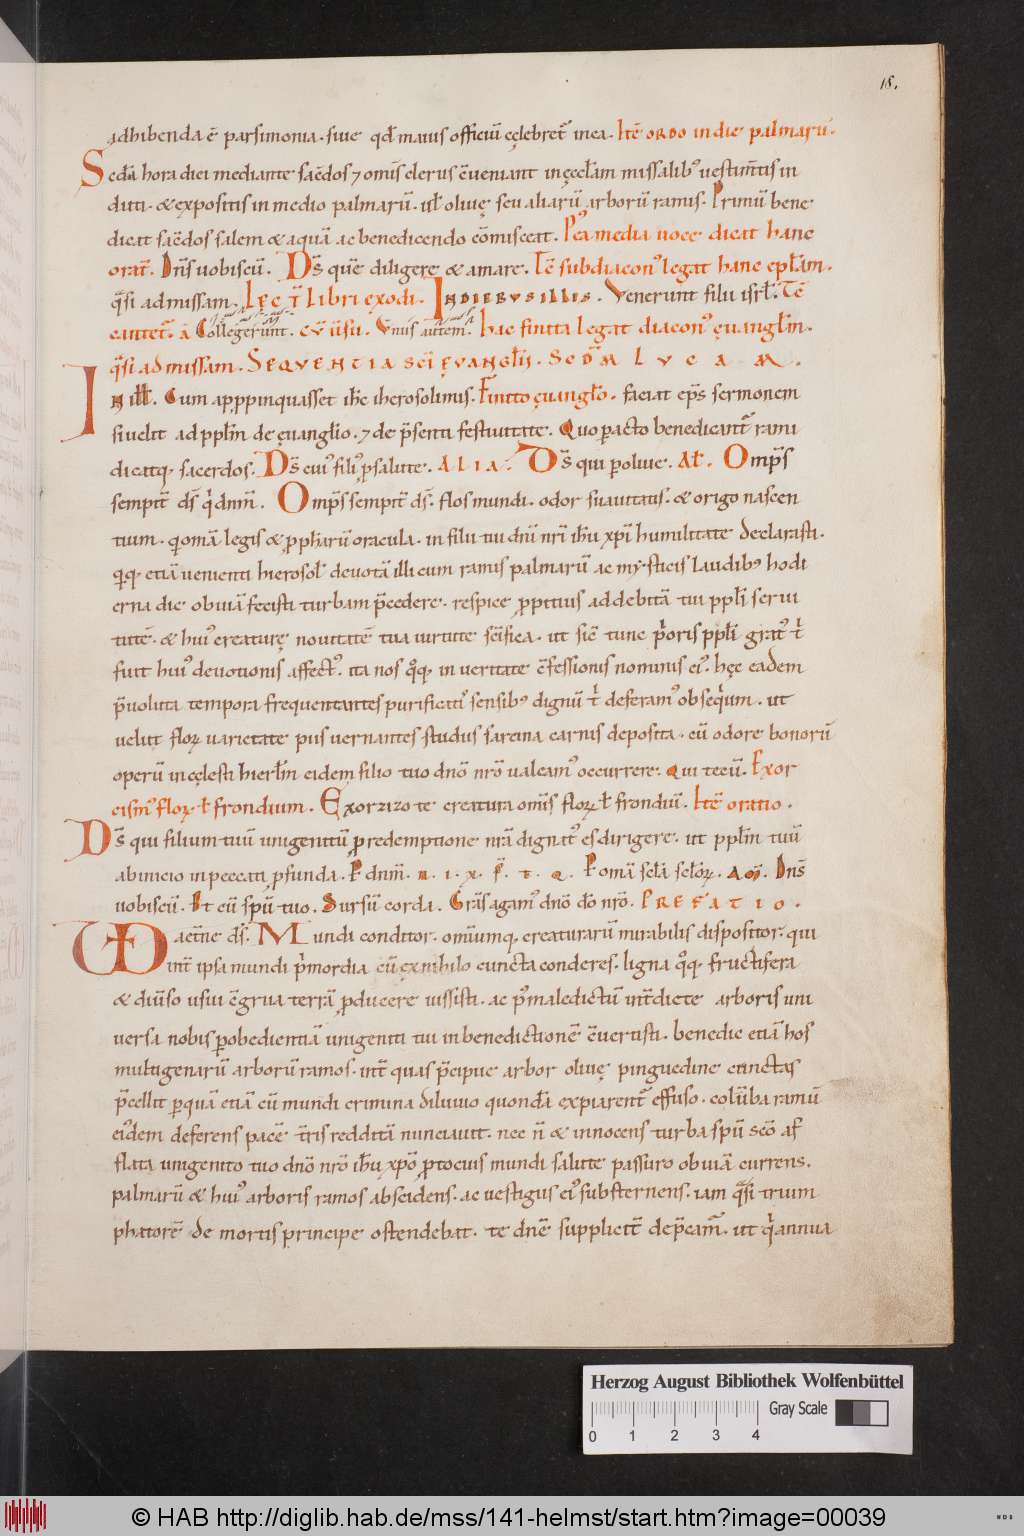 18.
adhibenda ē parsimonia. siue qđ maius officiū cęlebret̄ in ea. Itē ordo in die palmarū.
Sedā hora diei mediante sac̄dos ⁊ om̄is clerus c̄ueniant in ęcclam missalib; uestim̄tis in
duti. & expositis in medio palmarū. uł oliuę seu aliarū arborū ramis. Primū bene
dicat sac̄dos salem & aquā ac benedicendo cōmisceat. Pꝰea media uoce dicat hanc
orat̄. Dn̄s uobiscū. Ds̄ quē diligere & amare. Tc̄ subdiaconꝰ legat hanc epłam.
q̄si ad missam. Lęc t̄ Libri exodi. In diebus illis. Venerunt filii isrł. Tc̄
cantet̄ a Collegerunt. cū ūsu. Vnus autem. Hac finita legat diaconꝰ ęuangłm.
q̄si ad missam. Sequentia sc̄i ęvangłii. Scdm̄ Lucam.
In illł. Cum apꝓpinquasset ih̄c iherosolimis. Finito ęuangło. faciat ep̄s sermonem
si uelit ad ppłm de ęuanglio. ⁊ de p̄senti festiuitate. Quo ꝑacto benedicant̄ rami
dicatq; sacerdos. Ds̄ cuiꝰ filiꝰ ꝓ salute. Alia. Ds̄ qui ꝑ oliue. Ał. Omp̄s
sempit̄ ds̄ q̇ dn̄m̄. Omp̄s sempit̄ ds̄. flos mundi. odor suauitatis. & origo nascen
tium. q̇ omā legis & ꝓphārū oracula. in filii tui dn̄i nr̄i ih̄u xp̄i humilitate declarasti.
q̇q; etiā uenienti hierosoł deuotā illi cum ramis palmarū ac mysticis laudib; hodi
erna die obuiā fecisti turbam p̄cedere. respice ꝓpitius ad debitā tui ppłi serui
tutē. & huiꝰ creaturę nouitatē tua uirtute sc̄ifica. ut sic̄ tunc ṗoris ppłi gratꝰ ṫ
fuit huiꝰ deuotionis affectꝰ. ita nos q̊q; in ueritate c̄fessionis nominis eiꝰ. hęc eadem
p̄uoluta tempora frequentantes purificatiꝰ sensib; dignū ṫ deferamꝰ obseq̇um. ut
uelut floꝝ uarietate piis uernantes studiis sarcina carnis deposita. cū odore bonorū
operū in cęlesti hierłm eidem filio tuo dn̄o nr̄o ualeamꝰ occurrere. Qui tecū. Exor
cismꝰ floꝝ. ł frondium. Exorzizo te creatura om̄is floꝝ ł frondiū. Itē oratio.
Ds̄ qui filium tuū unigenitū ꝓ redemptione nr̄a dignatꝰ es dirigere. ut ppłm tuū
ab inicio in peccati ꝓfunda. P dn̄m̄. n. i. x. f. t. q. P omā scłā scłoꝝ. Am̄. Dn̄s
uobiscū. Et cū spū tuo. Sursū corda. Gr̄as agamꝰ dn̄o dō nr̄o. Prefatio.
VD aet̄ne ds̄. Mundi conditor. omiumq; creaturarū mirabilis dispositor. qui
int̄ ipsa mundi ṗmordia cū ex nihilo cuncta conderes. ligna q̊q; fructifera
& diūso usui c̄grua terrā ꝓducere iussisti. ac pꝰ maledictū int̄dicte arboris uni
uersa nobis ꝑ obedientiā unigeniti tui in benedictionē c̄uertisti. benedic etiā hos
multigenarū arborū ramos. int̄ quas p̄cipue arbor oliuę pinguedine cunctas
p̄cellit ꝑ quā etiā cū mundi crimina diluuio quondā expiarent̄ effuso. colūba ramū
eiꝰdem deferens pacē t̄ris redditā nunciauit. nec n̄ & innocens turba spū sc̄o af
flata unigenito tuo dn̄o nr̄o ih̄u xp̄o ꝓ tocius mundi salute passuro obuiā currens.
palmarū & huiꝰ arboris ramos abscidens. ac uestigiis eiꝰ substernens. iam q̄si trium
phatorē de mortis principe ostendebat. te dn̄e supplicit̄ dep̄camꝰ. ut q̇ annua
Herzog August Bibliothek Wolfenbüttel
Gray Scale
0 1 2 3 4
© HAB http://diglib.hab.de/mss/141-helmst/start.htm?image=00039